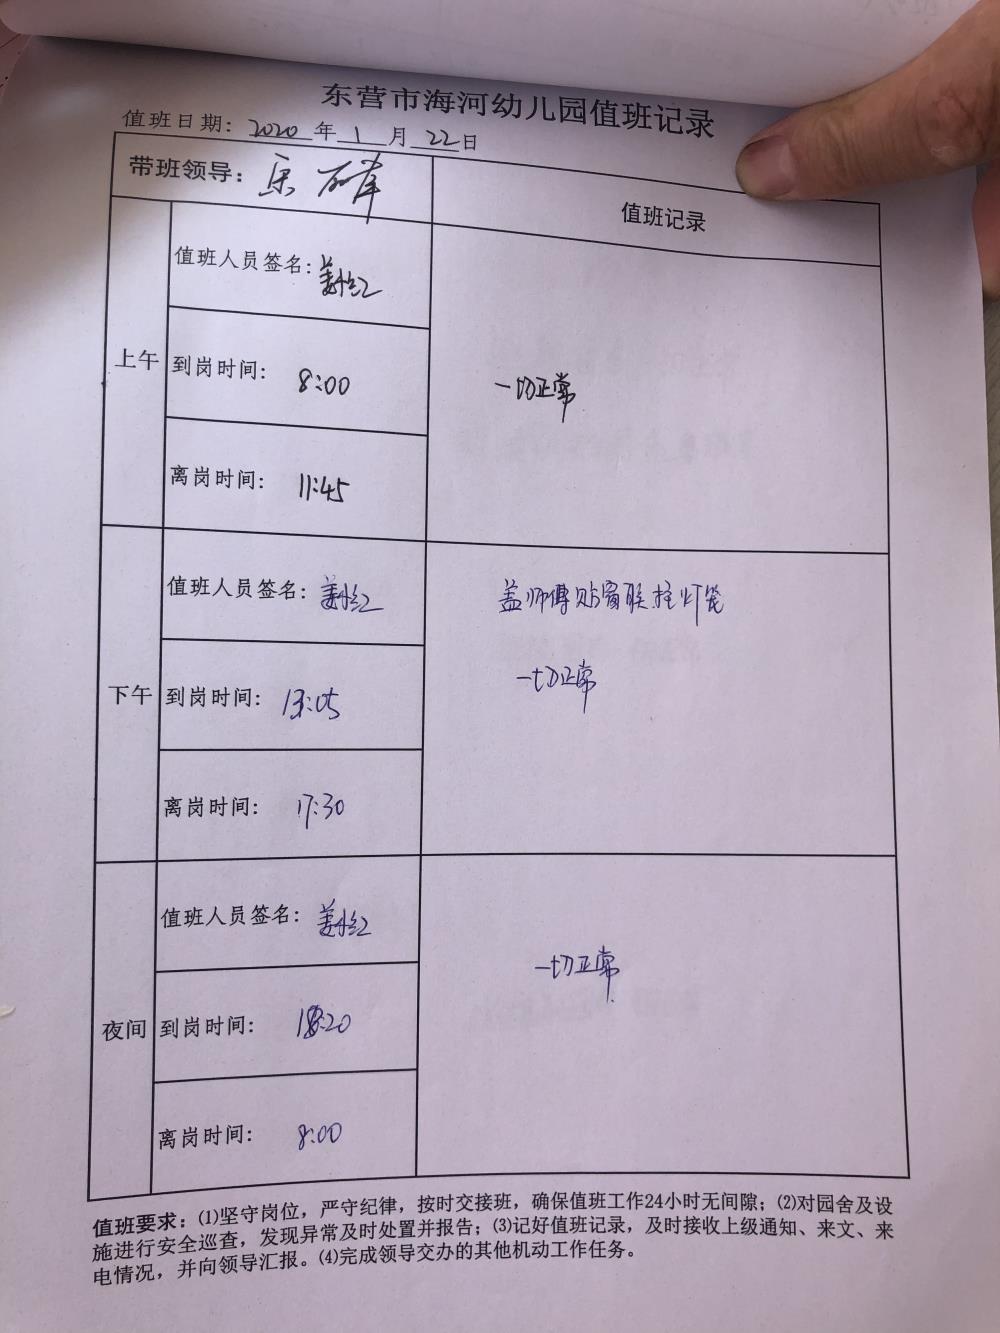 东营市海河幼儿园值班记录
值班日期: 2020 年 1 月 22 日
带班领导:
值班记录
上午
值班人员签名:
到岗时间: 8:00
离岗时间: 11:45
一切正常
下午
值班人员签名:
到岗时间: 13:05
离岗时间: 17:30
盖师傅贴窗联挂灯笼
一切正常
夜间
值班人员签名:
到岗时间: 18:20
离岗时间: 8:00
一切正常
值班要求: (1)坚守岗位，严守纪律，按时交接班，确保值班工作24小时无间隙；(2)对园舍及设
施进行安全巡查，发现异常及时处置并报告；(3)记好值班记录，及时接收上级通知、来文、来
电情况，并向领导汇报。(4)完成领导交办的其他机动工作任务。